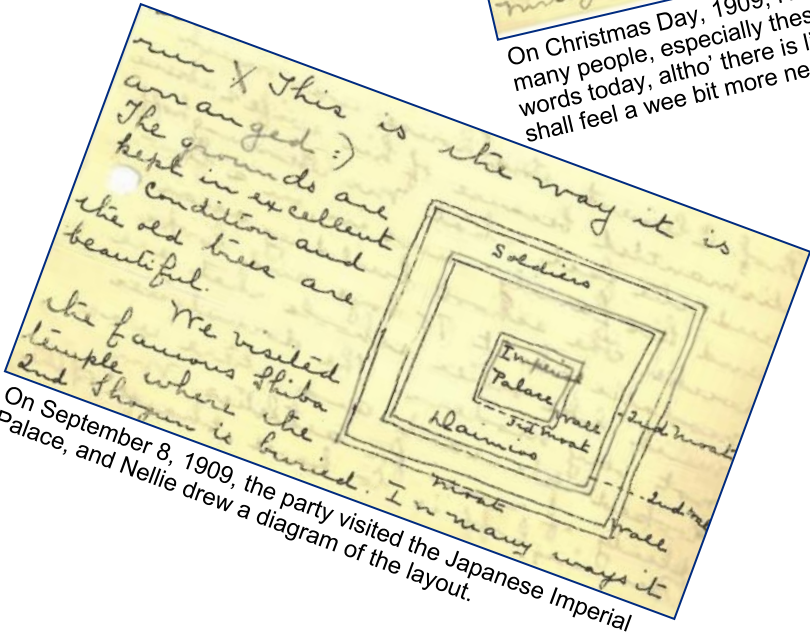 On Christmas Day, 1909,
many people, especially
words today, altho' there is
shall feel a wee bit more
run X This is the way it is
arranged :)
The grounds are
kept in excellent
condition and
the old trees are
beautiful.
We visited
the famous Shiba
temple where the
2nd Shogun is buried. In many ways it
Soldiers
Imperial
Palace
wall
3rd moat
Daimios
2nd moat
2nd
moat
wall
On September 8, 1909, the party visited the Japanese Imperial
Palace, and Nellie drew a diagram of the layout.